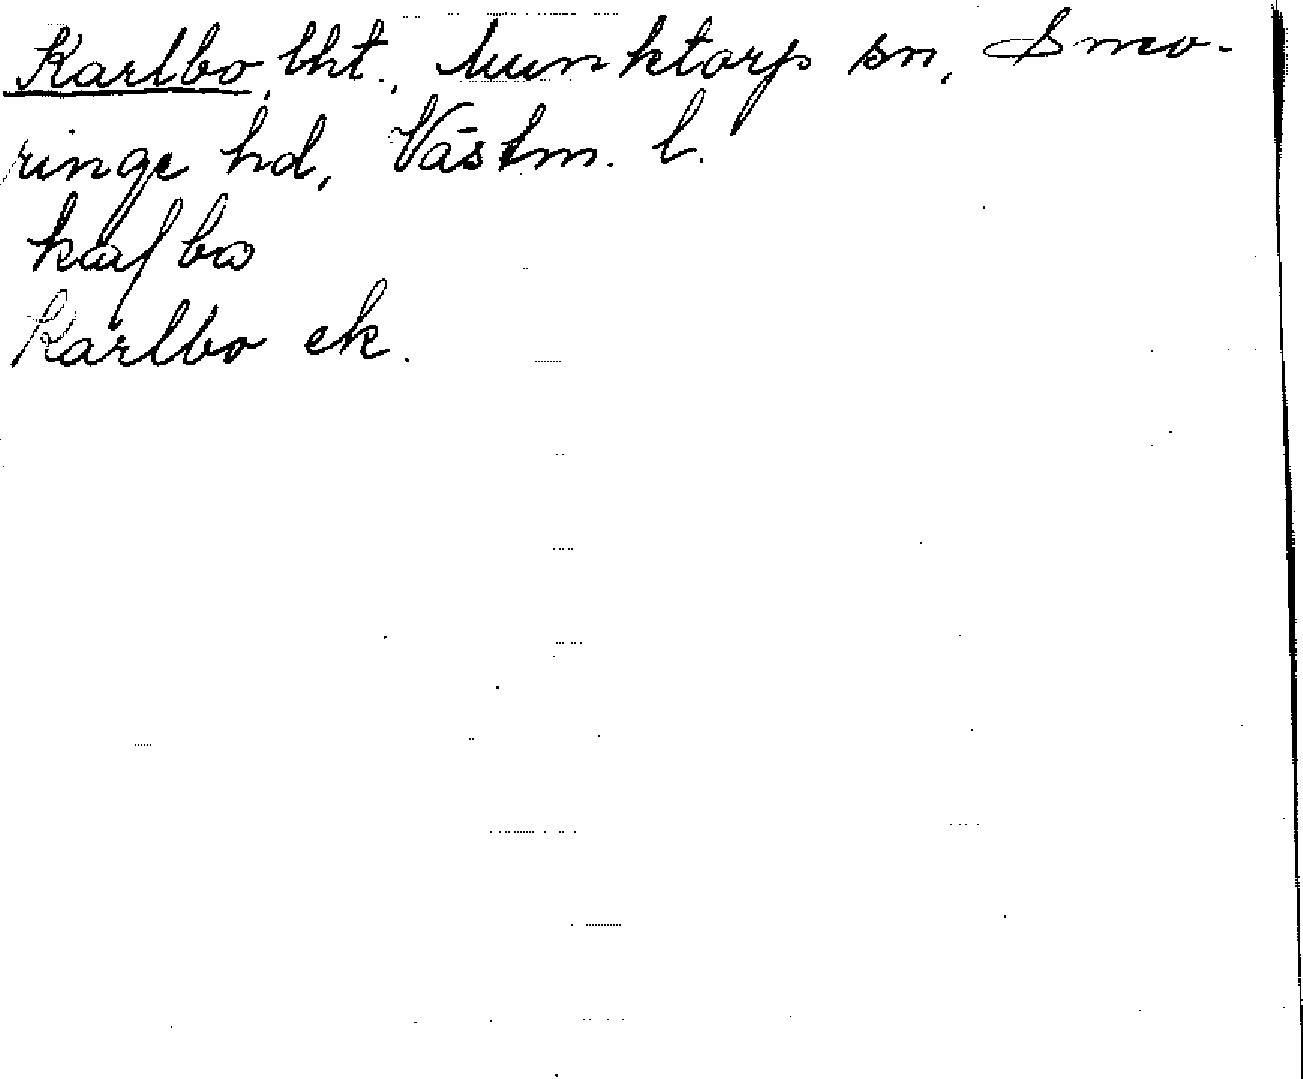 Karlbo, lht., Munktorp sn, Snev-
ringe hd, Västm. l.
kaʃbo
Karlbo ek.